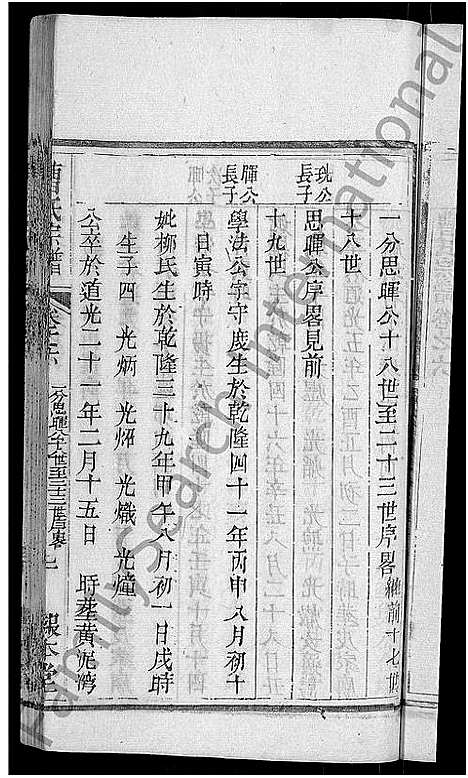 一分思暉公十八世至二十三世序畧 繼前十七世
十八世
琉公長子
思暉公序畧見前
十九世
暉公長子
學法公字守度生於乾隆四十一年丙申八月初十
日寅時
妣柳氏生於乾隆三十九年甲午八月初一日戌時
生子四 光炳 光炤 光熾 光燑
公卒於道光二十一年二月十五日 時塟黄泥湾
曹氏宗譜
卷之六
一分思暉公十八世至二十三世序畧
報本堂
FamilySearch International